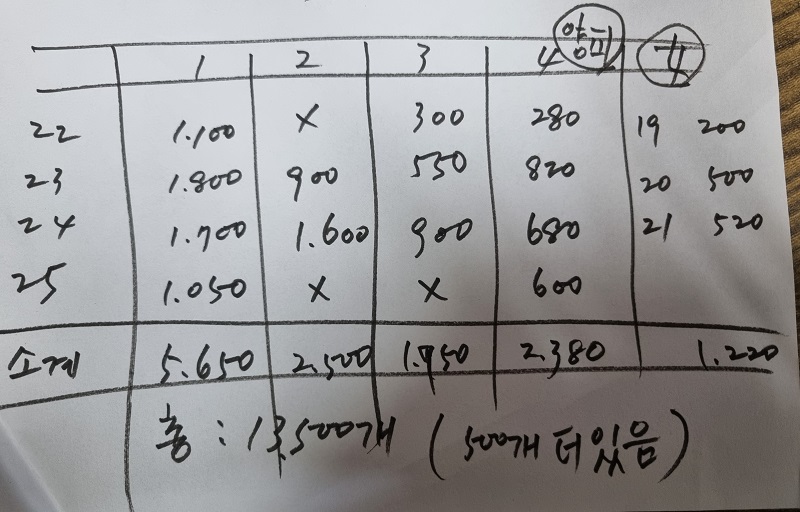 1 2 3 4
22 1.100 X 300 280 19 200
23 1.800 900 550 820 20 500
24 1.700 1.600 900 680 21 520
25 1.050 X X 600
소계 5.650 2.500 1.750 2.380 1.220
총 : 13,500개 (500개 더 있음)